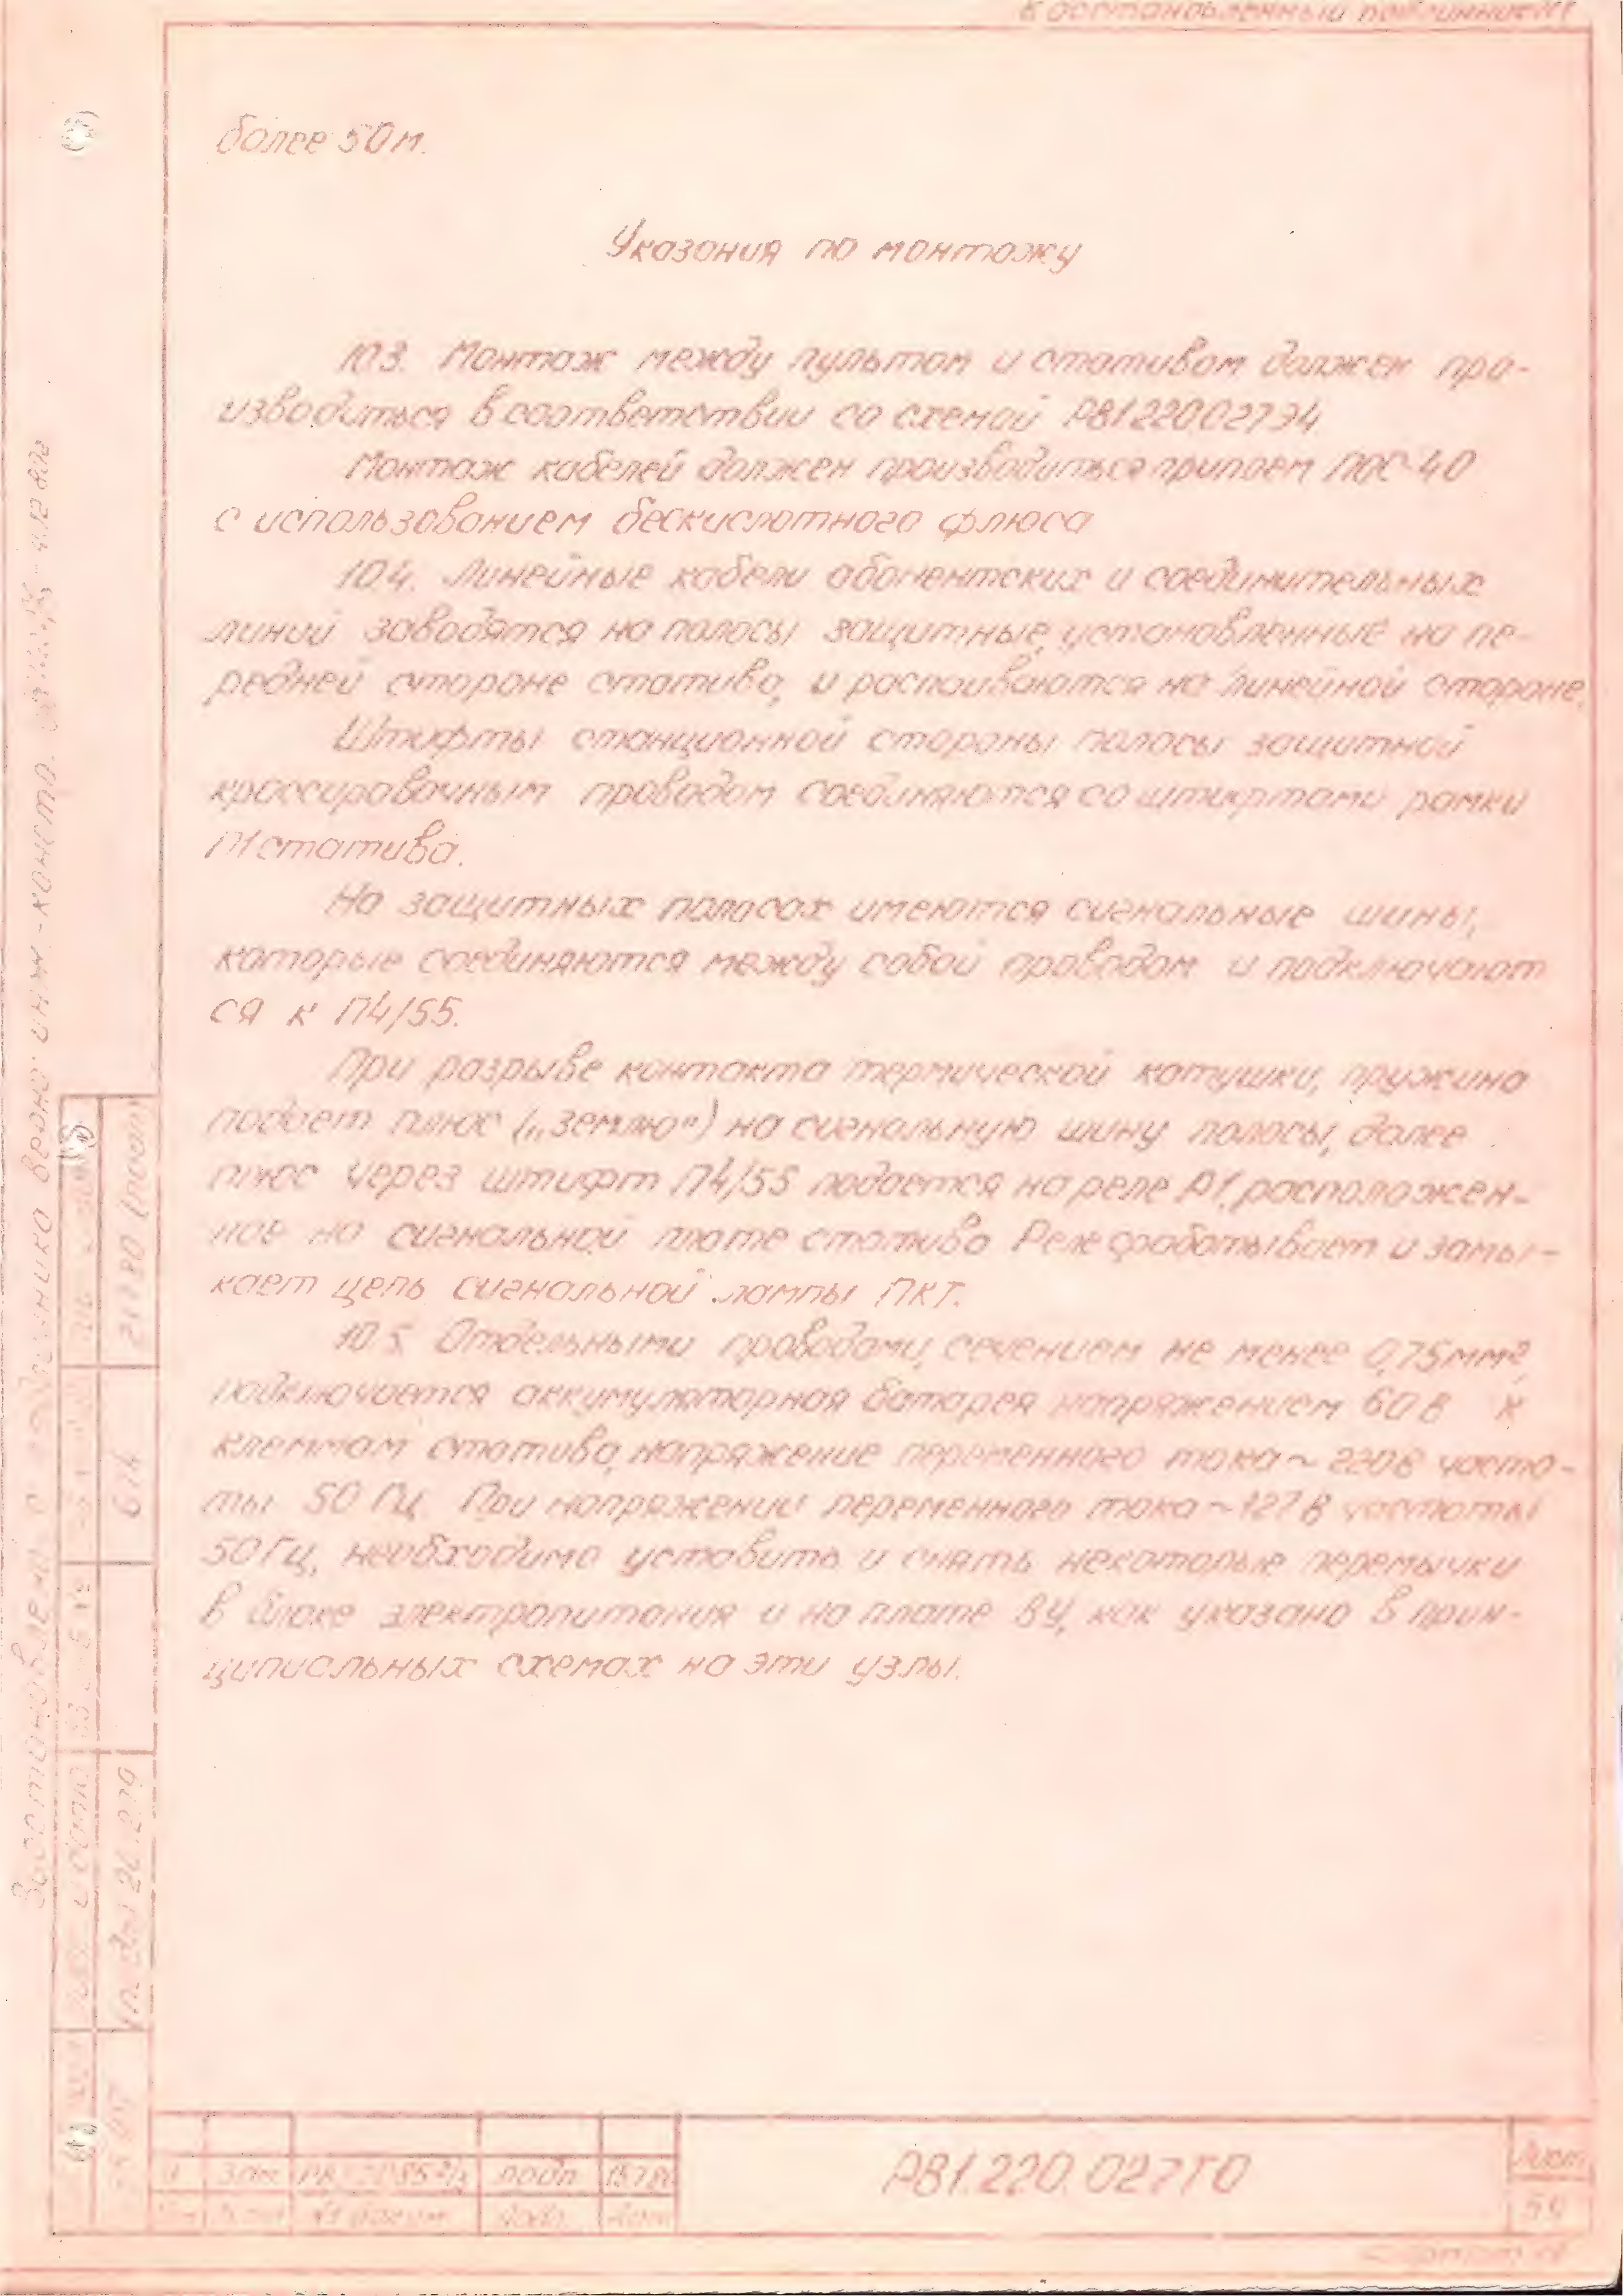 Восстановленный подлинник
более 50 м.
Указания по монтажу
10.3. Монтаж между пультом и стативом должен про-
изводиться в соответствии со схемой РВ1.220.027Э4
Монтаж кабелей должен производиться припоем ПОС-40
с использованием бескислотного флюса
10.4. Линейные кабели абонентских и соединительных
линий заводятся на полосы защитные, установленные на пе-
редней стороне статива, и распаиваются на линейной стороне.
Штифты станционной стороны полосы защитной
кроссировочным проводом соединяются со штифтами рамки
П1 статива.
На защитных полосах имеются сигнальные шины,
которые соединяются между собой проводом и подключают
ся к П4/55.
При разрыве контакта термической катушки, пружина
подает плюс („землю") на сигнальную шину полосы, далее
плюс через штифт П4/55 подается на реле Р1, расположен-
ное на сигнальной плате статива Реле срабатывает и замы-
кает цепь сигнальной лампы ПКТ.
10.5. Отдельными проводами, сечением не менее 0,75мм²,
подключается аккумуляторная батарея напряжением 60 В к
клеммам статива, напряжение переменного тока ~ 220В часто-
ты 50 Гц. При напряжении переменного тока ~ 127 В частоты
50 Гц, необходимо уставить и снять некоторые перемычки
в блоке электропитания и на плате ВУ, как указано в прин-
ципиальных схемах на эти узлы.
Восстановлено с подлинника верно: инж.-констр.
614
1 Зам. подп.
№ докум. Подп. Дата
РВ1.220.027ТО
Лист